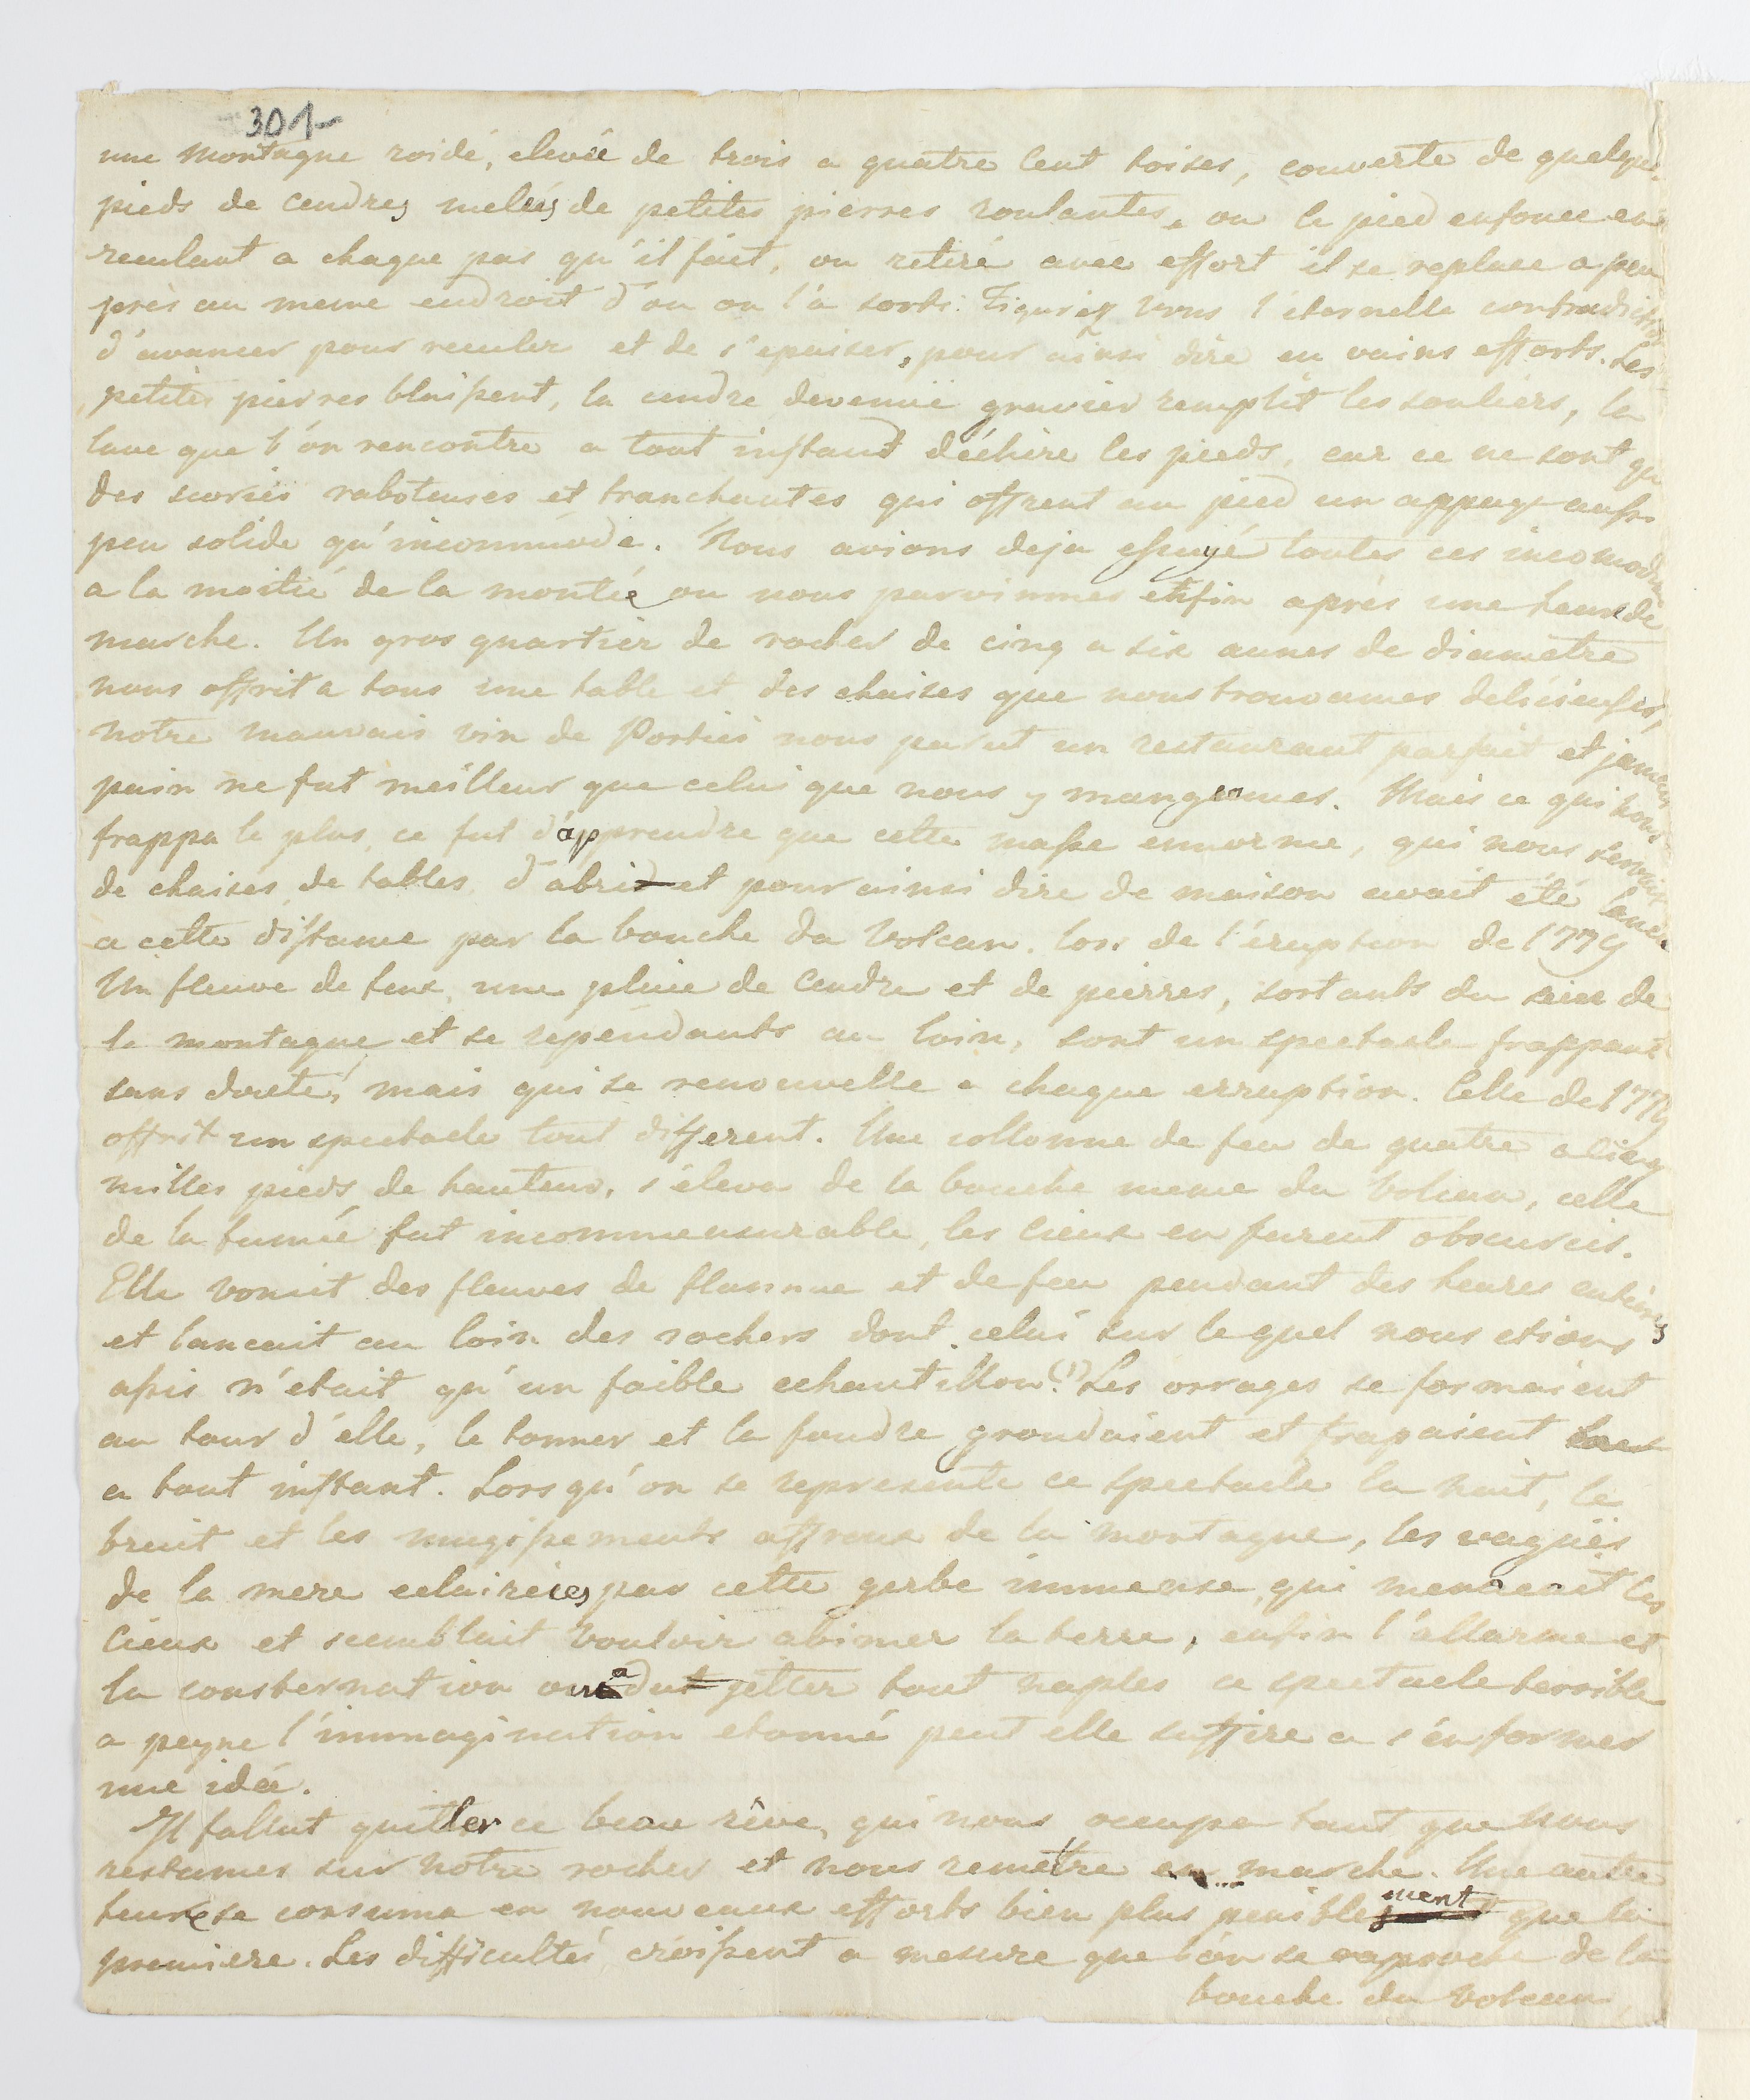 301
une montagne roide, elevée de trois a quatre Cent toises, couverte de quelque
pieds de Cendres meleés de petites pierres roulantes, ou le pied enfonce en
reculant a chaque pas qu'il fait, ou retiré avec effort il se replace a peu
près au meme endroit d'ou on l'a sorti. Figurez vous l'eternelle contradiction
d'avancer pour reculer et de s'epuiser, pour ainsi dire en vains efforts. Les
petites pierres blaissent, la cendre devenuë gravier remplit les souliers, la
lave que l'on rencontre a tout instant déchire les pieds, car ce ne sont que
des scories raboteuses et tranchantes qui offrent au pied un appuy aussi
peu solide qu'incommode. Nous avions deja essuyé toutes ces incomodités
a la moitié de la montée ou nous parvinmes enfin après une heure de
marche. Un gros quartier de rocher de cinq a six aunes de diametre
nous offrit a tous une table et des chaises que nous trouvames delicieuses,
notre mauvais vin de Portici nous parut un restaurant parfait et jamais
pain ne fut meilleur que celui que nous y mangeames. Mais ce qui nous
frappa le plus, ce fut d'apprendre que cette masse ennorme, qui nous servait
de chaises, de tables, d'abri et pour ainsi dire de maison avait été lancée
a cette distance par la bouche du Volcan, lors de l'éruption de 1779
Un fleuve de feux, une pluie de Cendre et de pierres, sortants du sein de
la montagne et se rependants au loin, sont un spectacle frappant
sans doute, mais qui se renouvelle a chaque erruption. Celle de 1779
offrit un spectacle tout different. Une collonne de feu de quatre a cinq
milles pieds de hauteur, s'éleva de la bouche meme du Volcan, celle
de la fumée fut incommensurable, les Cieux en furent obscurcis.
Elle vomit des fleuves de flamme et de feu pendant des heures entieres
et lancait au loin des rochers dont celui sur lequel nous etions
assis n'etait qu'un faible echantillon. (1) Les orrages se formaient
au tour d'elle, le tonner et la foudre grondaient et frapaient
a tout instant. Lorsqu'on se represente ce spectacle la nuit, le
bruit et les mugissements affreux de la montagne, les vagues
de la mere eclaireés par cette gerbe immense, qui menacait les
Cieux et semblait vouloir abimer la terre, enfin l'allarme et
la consternation ou a dut jetter tout naples ce spectacle terrible
a peyne l'immagination etonné peut elle suffire a s'en former
une idée.
Il fallut quitter ce beau rêve, qui nous occupa tant que nous
restames sur notre rocher et nous remettre en marche. Une autre
heure se consuma en nouveaux efforts bien plus peniblement que la
premiere. Les difficultés croissent a mesure que l'on se raproche de la
bouche du Volcan,